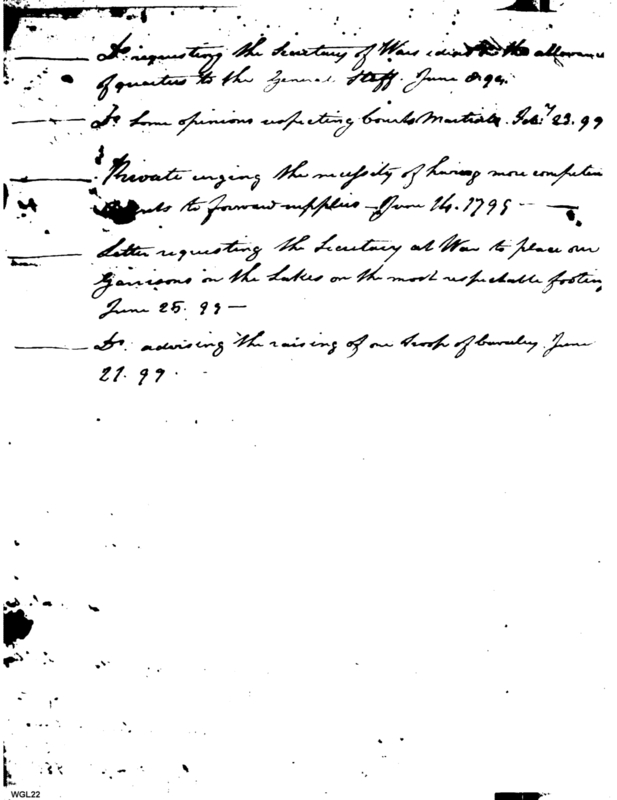 Do requesting the Secretary of Wars to the allowance
of quarters to the General Staff. June 8. 99.
Do Some opinions respecting Courts Martial. Feby 23. 99
Private urging the necessity of having more competen
to forward supplies - June 14. 1799 -
Letter requesting the Secretary at War to place our
Garrisons on the Lakes on the most respectable footing
June 25. 99 —
Do. advising the raising of one troop of Cavalry June
21. 99.
WGL22